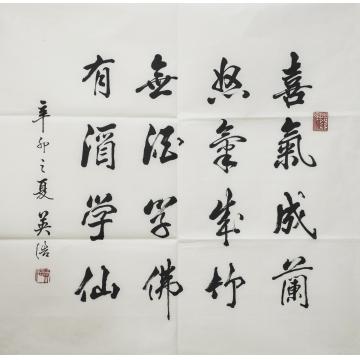 喜氣成蘭
怒氣成竹
無酒学佛
有酒学仙
辛卯之夏 英浩